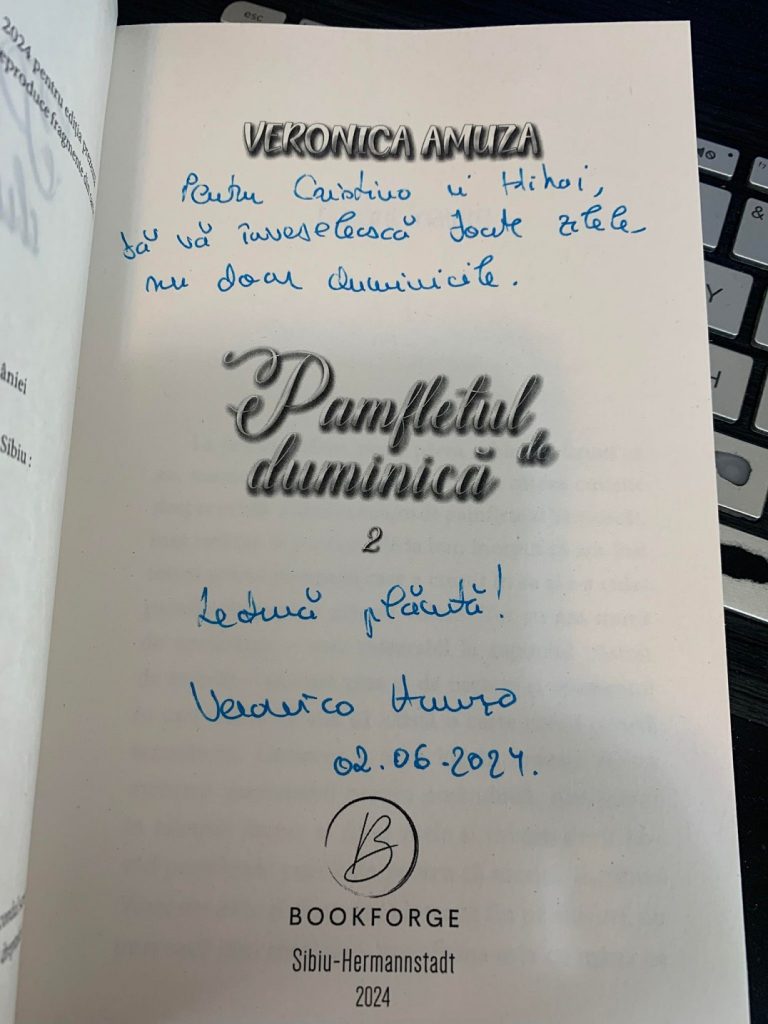 2024 pentru ediția
reproduce fragmente din
âniei
Sibiu :
esc
VERONICA AMUZA
Pentru Cristina și Mihai,
să vă înveselească toate zilele
nu doar duminicile.
Pamfletul de
duminică
2
Lectură plăcută!
Veronica Amuza
02.06.2024.
B
BOOKFORGE
Sibiu-Hermannstadt
2024
&
Y
H